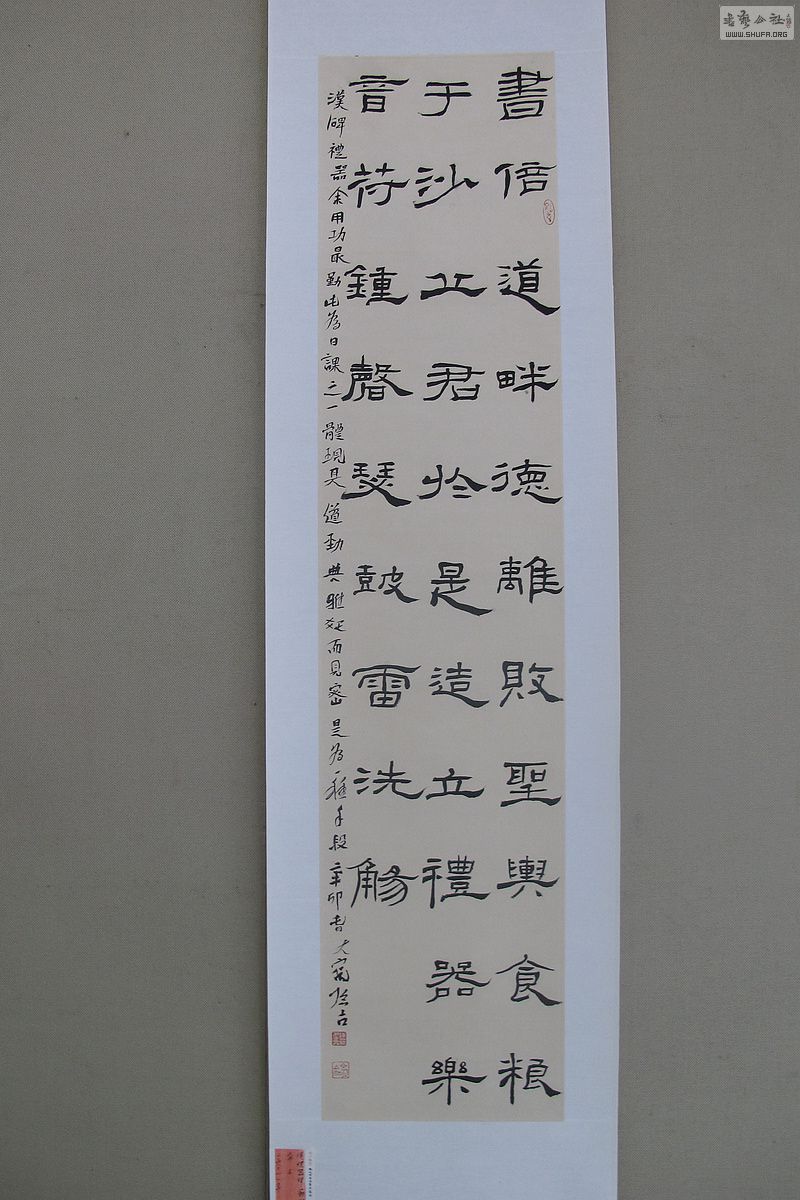 書倍道畔德離敗聖輿食粮
于沙丘君於是造立禮器樂
音苻鍾磬瑟鼓雷洗觴
漢碑禮器余用功最勤此為日課之一體現其遒勁典雅而見密是為一種手段辛卯春大
WWW.SHUFA.ORG